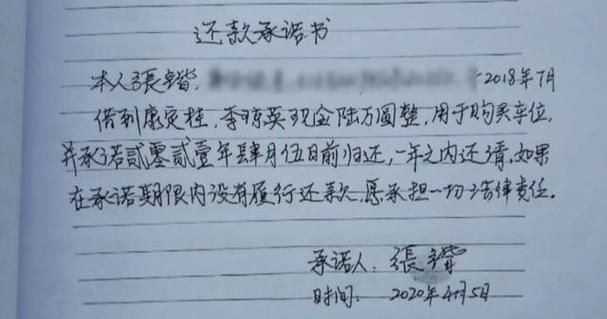 还款承诺书
本人張锴, 2018年7月
借到康定桂,李琼英现金陆万圆整,用于购买车位,
并承诺贰零贰壹年肆月伍日前归还,一年之内还清,如果
在承诺期限内没有履行还款,愿承担一切法律责任。
承诺人:張
时间: 2020年4月5日